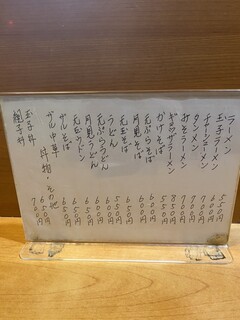 ラーメン 550円
玉子ラーメン 600円
チャーシューメン 700円
タンメン 700円
みそラーメン 700円
ギョウザラーメン 850円
かけそば 550円
天ぷらそば 600円
月見そば 600円
天玉そば 650円
うどん 550円
天ぷらうどん 600円
月見うどん 600円
天玉ウドン 650円
ザルそば 600円
ザル中華 650円
丼物・その他
玉子丼 600円
親子丼 700円